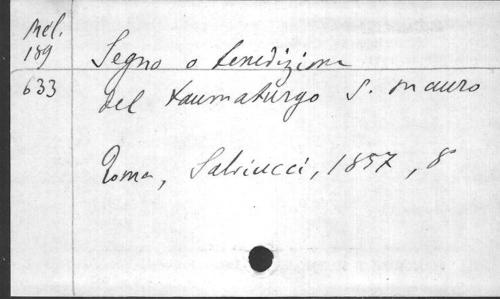 Mél.
189
633
Segno o benedizione
del taumaturgo S. Mauro
Roma, Salviucci, 1857, 8°